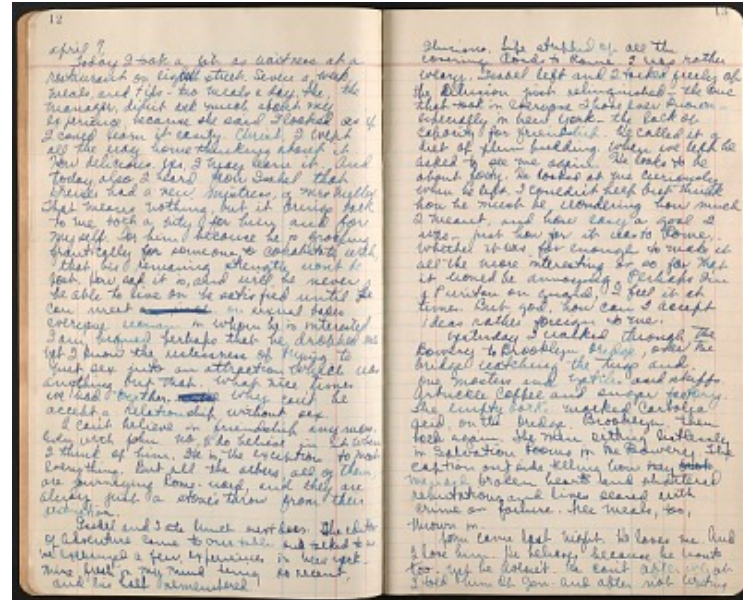 12
april 9
Today I took a job as waitress at a
restaurant on eighth street. Seven a week,
meals, and tips - two meals a day, the
manager, didn't ask much about my
experience because she said I looked as if
I could learn it easily. Christ, I wept
all the way home thinking about it.
How delicious. yes, I may learn it. And
today also I heard from Isabel that
had a new mistress, a Mrs
That means nothing, but it brings back
to me such a pity for him and for
myself. For him because he is groping
frantically for someone to cohabit with,
that his remaining strength won't be
lost. How sad it is, and will he never
be able to live or be satisfied until he
can meet on sexual bases
everyone woman in whom he is interested.
I am perhaps that he dropped me
yet I know the uselessness of trying to
put sex into an attraction which was
anything but that. What nice times
we had together. Why can't he
accept a relationship without sex.
I can't believe in friendship any more.
Only with John no, I do believe in it when
I think of him. He is the exception to most
everything. But all the others, all of them,
are journeying Rome-ward, and they are
always just a stone's throw from their
destination.
Isabel and I ate lunch next door. The
of adventure came to our table and talked to us
we exchanged a few experiences in New York.
mine fresh in my mind being so recent,
and his half remembered
13
illusions. Life stripped of all the
covering roads to Rome. I was rather
weary. Isabel left and I talked freely of
the delusion just relinquished - the one
that took in everyone I have ever known -
especially in New York - the lack of
capacity for friendship. He called it a
diet of plum pudding. When we left he
asked to see me again. He looks to be
about forty. He looked at me curiously
when he left. I couldn't help but think
how he must be wondering how much
I meant, and how easy a goal I
was - just how far it was to Rome.
Whether it was far enough to make it
all the more interesting or so far that
it would be annoying. Perhaps I'm
a Puritan on guard, I feel it at
times. But god, how can I accept
ideas rather foreign to me.
Yesterday I walked through the
Bowery to Brooklyn bridge, over the
bridge watching the tugs and
one masters and and skiffs.
Arbuckle Coffee and sugar factory.
The empty marked Carbolic
acid, on the bridge. Brooklyn. Then
back again. The men sitting listlessly
in Salvation rooms in the Bowery. The
caption outside telling how they
broken hearts and shattered
reputations and lives seared with
crime or failure. Free meals, too,
thrown in.
John came last night. He loves me. And
I love him. He believes because he wants
too. yet he doesn't. He can't after
I told him of Gon. and after not writing